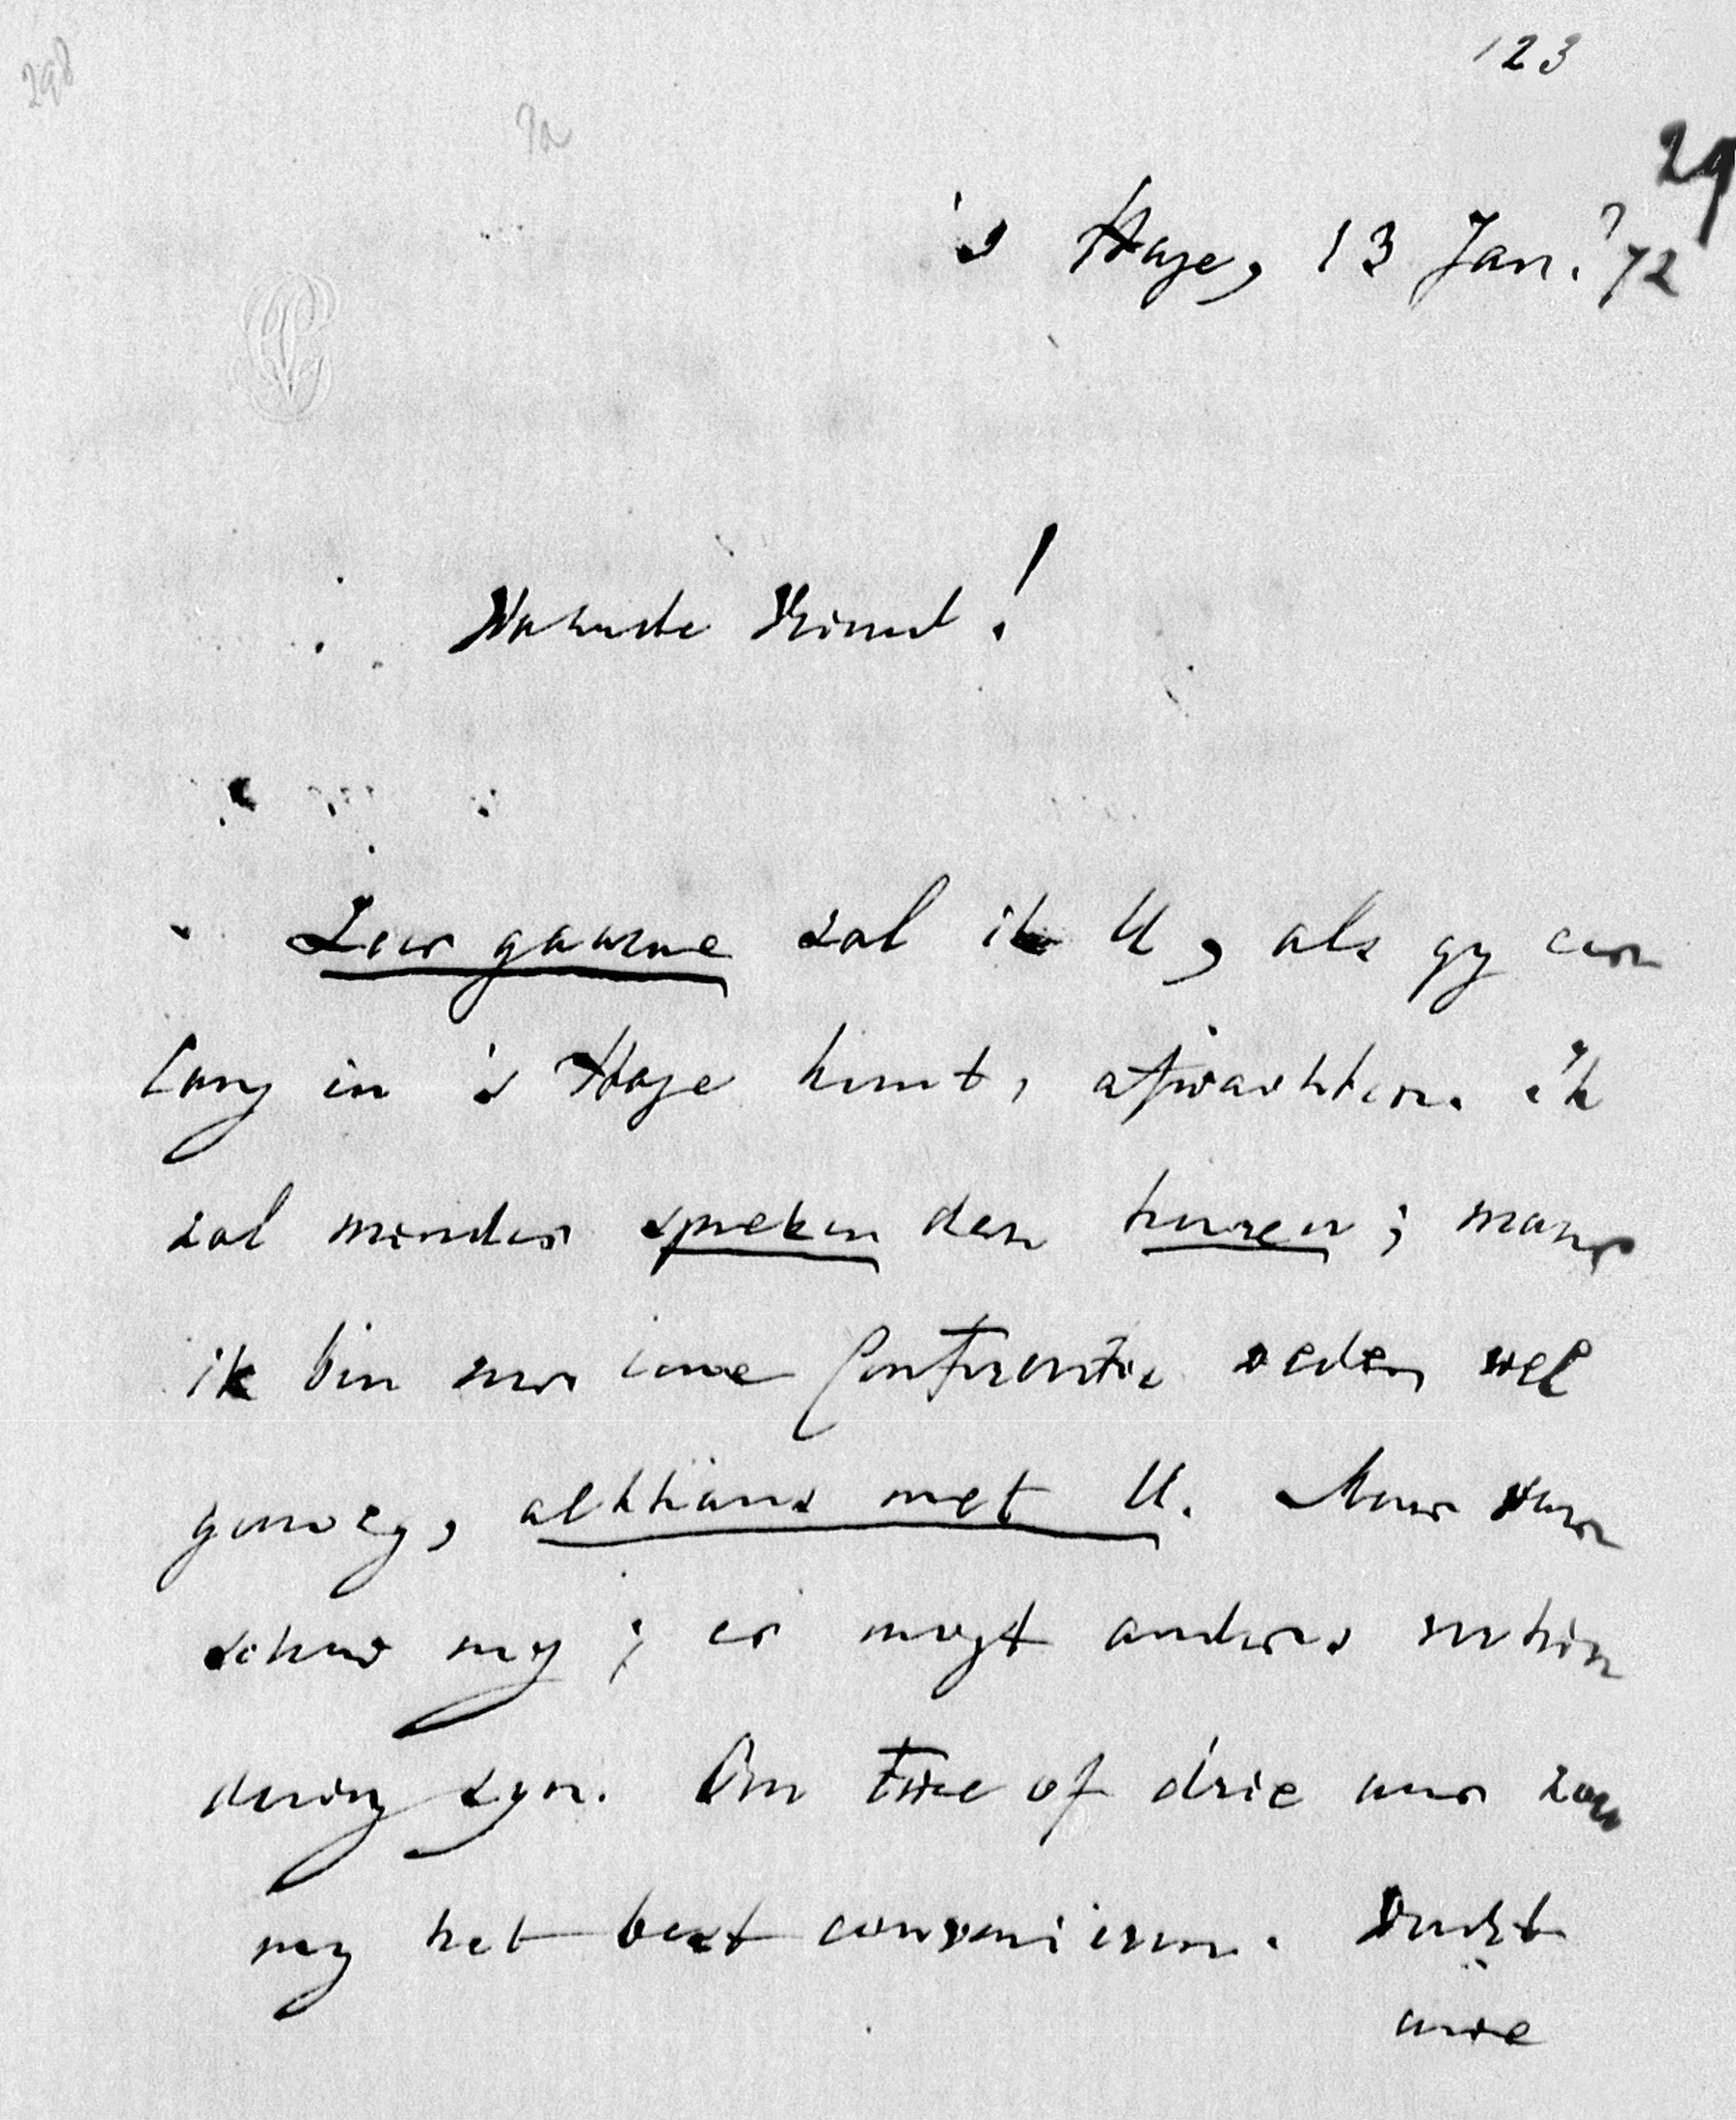 298
123
29
's Hage, 13 Jan. '72
Waarde Vriend!
Zeer gaarne zal ik U, als gy een
lang in 's Hage komt, afwachten. Ik
zal minder spreken dan hooren; maar
ik ben voor eene Conferentie zeker wel
genoeg, althans met U. Maar waar
schuw my; er mogt anders verhin
dering zyn. Om twee of drie uur zou
my het best convenieren. Duidt
uwe